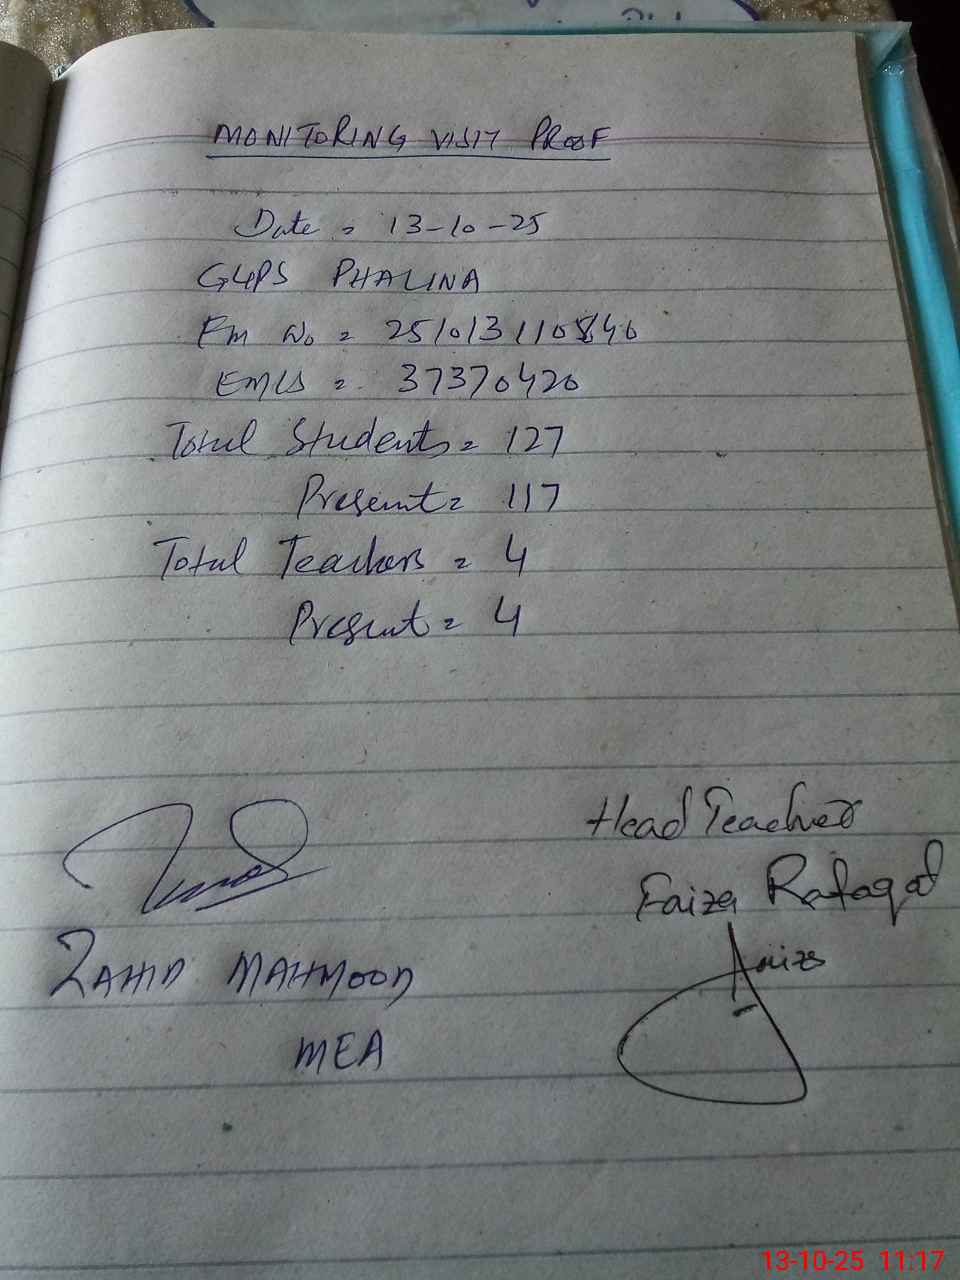 MONITORING VISIT PROOF
Date = 13-10-25
GGPS PHALINA
Em No = 251013110846
EMIS = 37370420
Total Students = 127
Present = 117
Total Teachers = 4
Present = 4
Head Teacher
Faiza Rafaqat
Faiza
ZAHID MAHMOOD
MEA
13-10-25 11:17